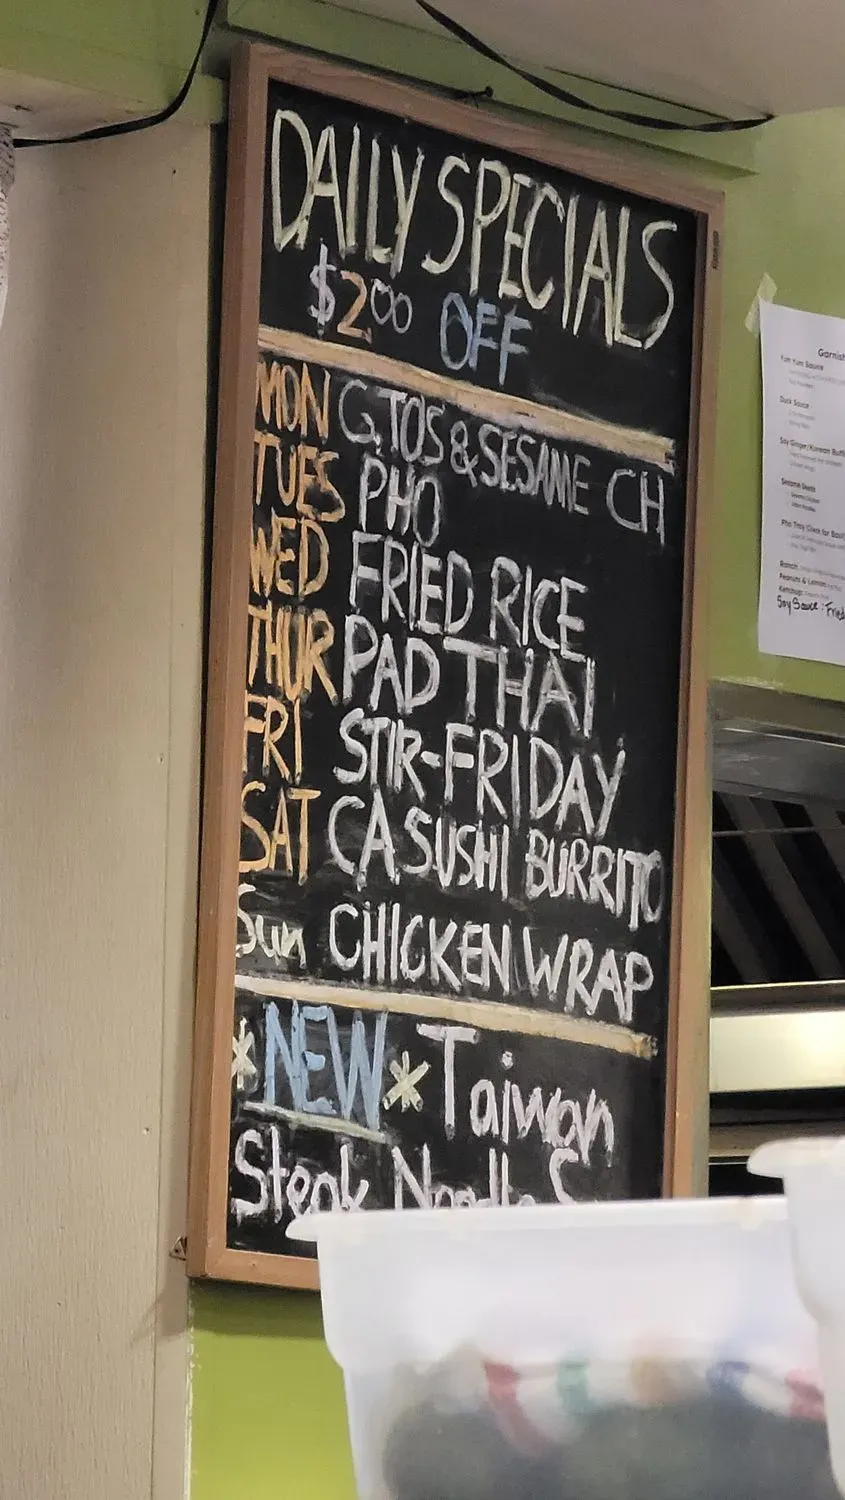 DAILY SPECIALS
$2.00 OFF
MON G,TOS & SESAME CH
TUES PHO
WED FRIED RICE
THUR PAD THAI
FRI STIR-FRIDAY
SAT CA SUSHI BURRITO
Sun CHICKEN WRAP
*NEW* Taiwan
Steak Noodle S
Garnish
Yum Yum Sauce
Duck Sauce
Soy Ginger/Korean Buff
Sesame Seeds
Pho Tray (Clam for Basil
Ranch
Peanuts & Lemon
Ketchup
Soy Sauce : Fried